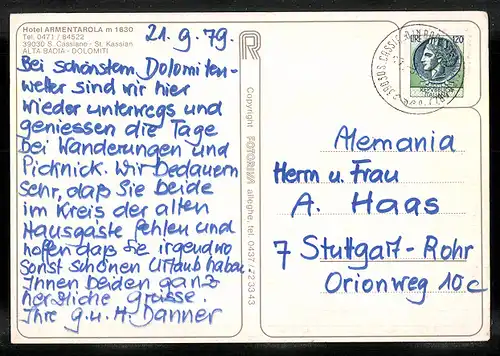 Hotel ARMENTAROLA m 1630
Tel. 0471 / 84522
39030 S. Cassiano - St. Kassian
ALTA BADIA - DOLOMITI
21.9.79.
Bei schönstem Dolomiten-
wetter sind wir hier
wieder unterwegs und
geniessen die Tage
bei Wanderungen und
Picknick. Wir bedauern
sehr, daß Sie beide
im Kreis der alten
Hausgäste fehlen und
hoffen daß Sie irgendwo
sonst schönen Urlaub haben
Ihnen beiden ganz
herzliche grüsse.
Ihre g.u.H. Danner
R
Copyright FOTORIVA alleghe, tel. 0437/723343
LIRE 120
39030 S. CASSIANO
Alemania
Herrn u. Frau
A. Haas
7 Stuttgart-Rohr
Orionweg 10c